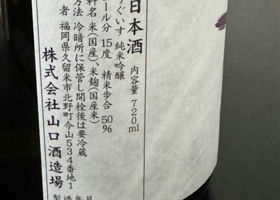 日本酒
内容量 720ml
ぐいす 純米吟醸
ール分 15度 精米歩合 50%
料名 米(国産)、米麹(国産米)
方法 冷暗所に保管し開栓後は要冷蔵
者 福岡県久留米市北野町今山534番地1
株式会社山口酒造場